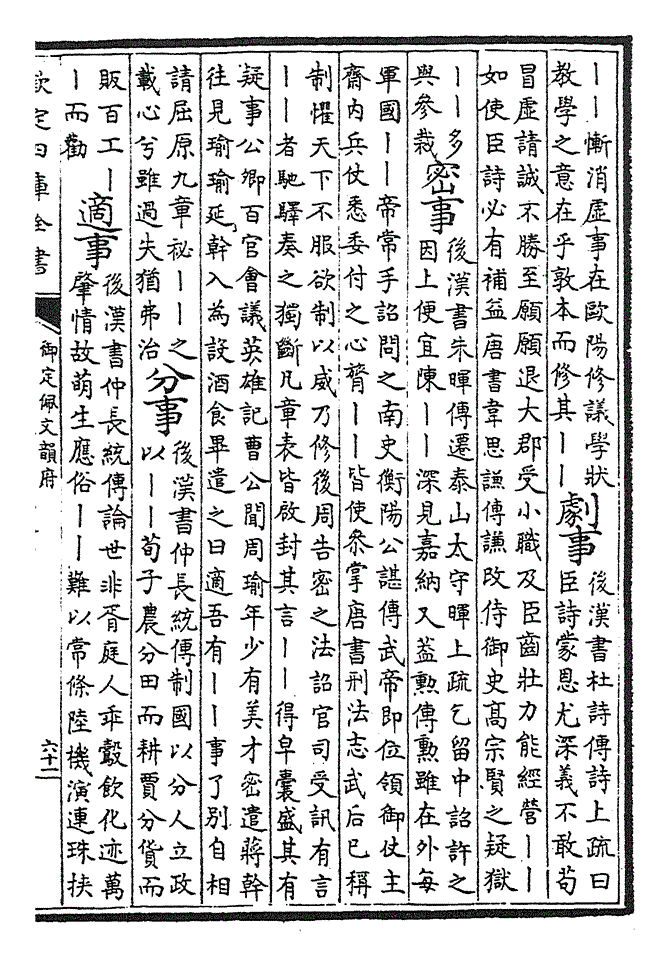 ——慚消虛事在歐陽修議學狀
教學之意在乎敦本而修其——
劇事
後漢書杜詩傳詩上疏曰
臣詩蒙恩尤深義不敢苟
冒虛請誠不勝至願願退大郡受小職及臣齒壯力能經營——
如使臣詩必有補益唐書韋思謙傳謙改侍御史高宗賢之疑獄
——多
與參裁
密事
後漢書朱暉傳遷泰山太守暉上疏乞留中詔許之
因上便宜陳——深見嘉納又蓋勲傳勲雖在外每
軍國——帝常手詔問之南史衡陽公諶傳武帝即位領御仗主
齋内兵仗悉委付之心膂——皆使叅掌唐書刑法志武后已稱
制懼天下不服欲制以威乃修後周告密之法詔官司受訊有言
——者馳驛奏之獨斷凡章表皆啟封其言——得皁囊盛其有
疑事公卿百官會議英雄記曹公聞周瑜年少有美才密遣蔣幹
往見瑜瑜延幹入為設酒食畢遣之曰適吾有——事了别自相
請屈原九章秘——之
載心兮雖過失猶弗治
分事
後漢書仲長統傳制國以分人立政
以——荀子農分田而耕賈分貨而
販百工—
—而勸
適事
後漢書仲長統傳論世非胥庭人乖鷇飲化迹萬
肇情故萌生應俗——難以常條陸機演連珠挟
欽定四庫全書
御定佩文韻府
六十二